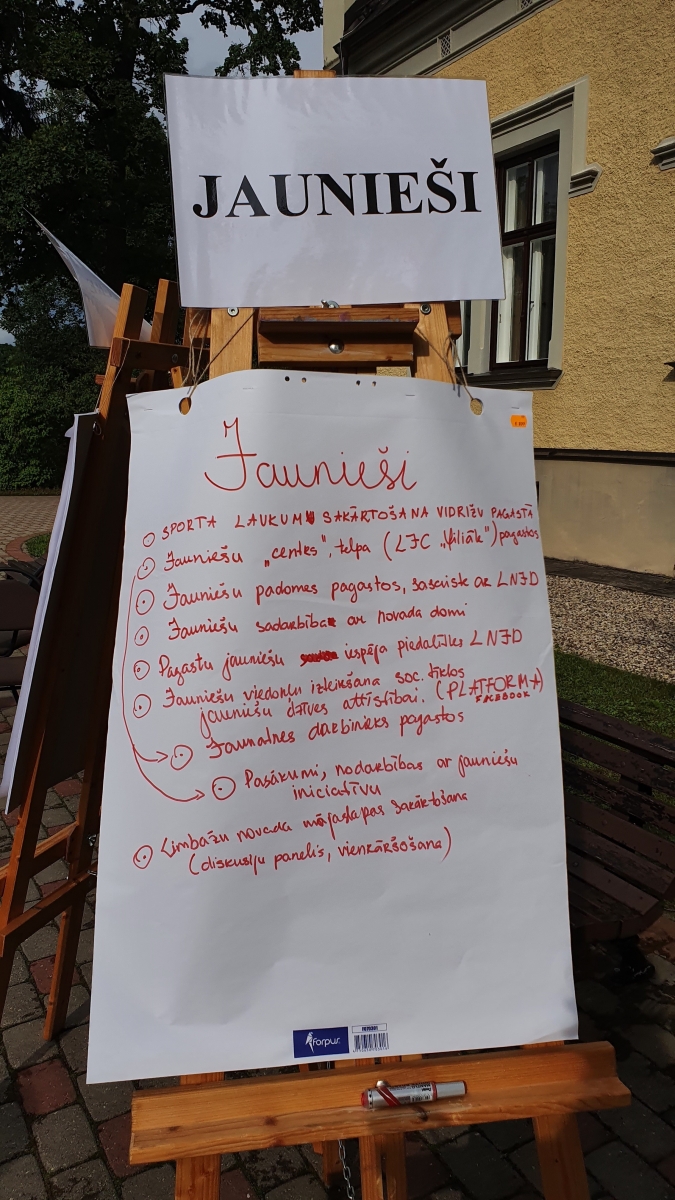 JAUNIEŠI
Jaunieši
SPORTA LAUKUMU SAKĀRTOŠANA VIDRIŽU PAGASTĀ
Jauniešu „centrs", telpa (LJC „Šiliāk") pagastos
Jauniešu padomes pagastos, sasaiste ar LNJD
Jauniešu sadarbība ar novada domi
Pagastu jauniešu iespēja piedalīties LNJD
Jauniešu viedokļu izteikšana soc. tīklos
jauniešu dzīves attīstībai. (PLATFORMA)
FACEBOOK
Jaunatnes darbinieks pagastos
Pasākumi, nodarbības ar jauniešu
iniciatīvu
Limbažu novada mājaslapas sakārtošana
(diskusiju panelis, vienkāršošana)
forpus